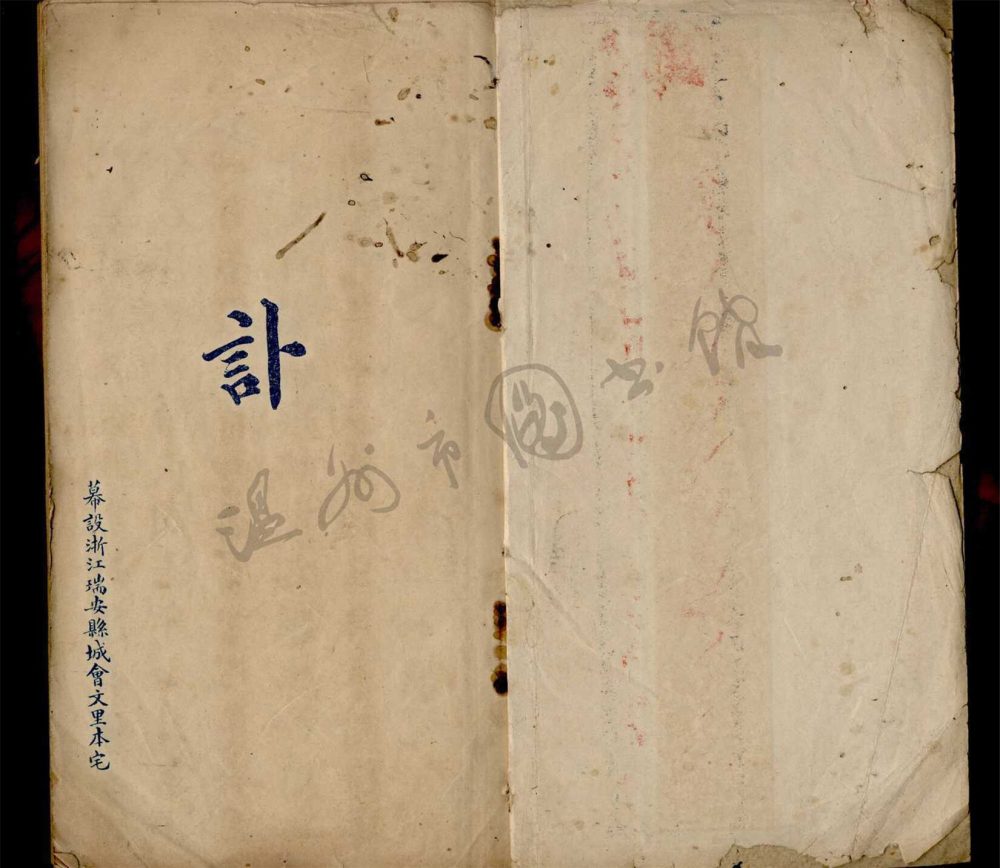 訃
幕設浙江瑞安縣城會文里本宅
温州市圖书館